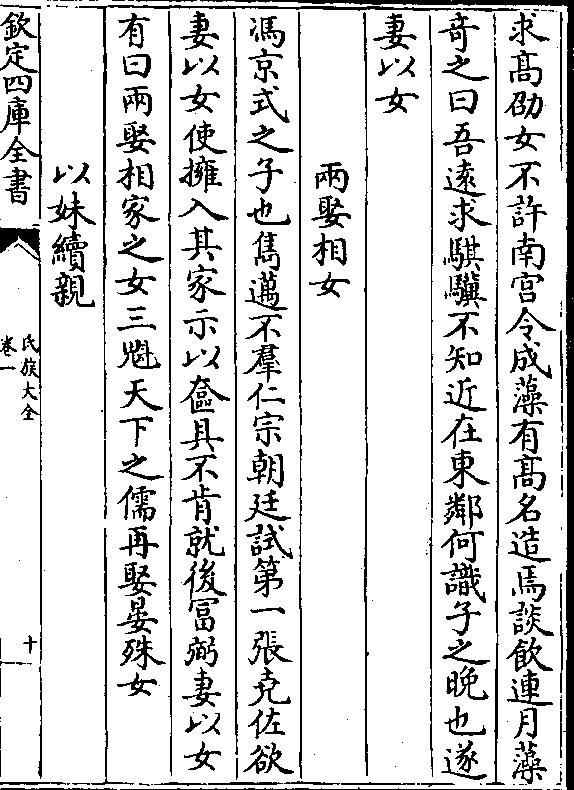 求髙劭女不許南宫令成藻有髙名造焉談飲連月藻
竒之曰吾逺求騏驥不知近在東鄰何識子之晚也遂
妻以女
兩娶相女
馮京式之子也雋邁不羣仁宗朝廷試第一張堯佐欲
妻以女使擁入其家示以奩具不肯就後冨弼妻以女
有曰兩娶相家之女三魁天下之儒再娶晏殊女
以妹續親
欽定四庫全書
氏族大全
卷一
十